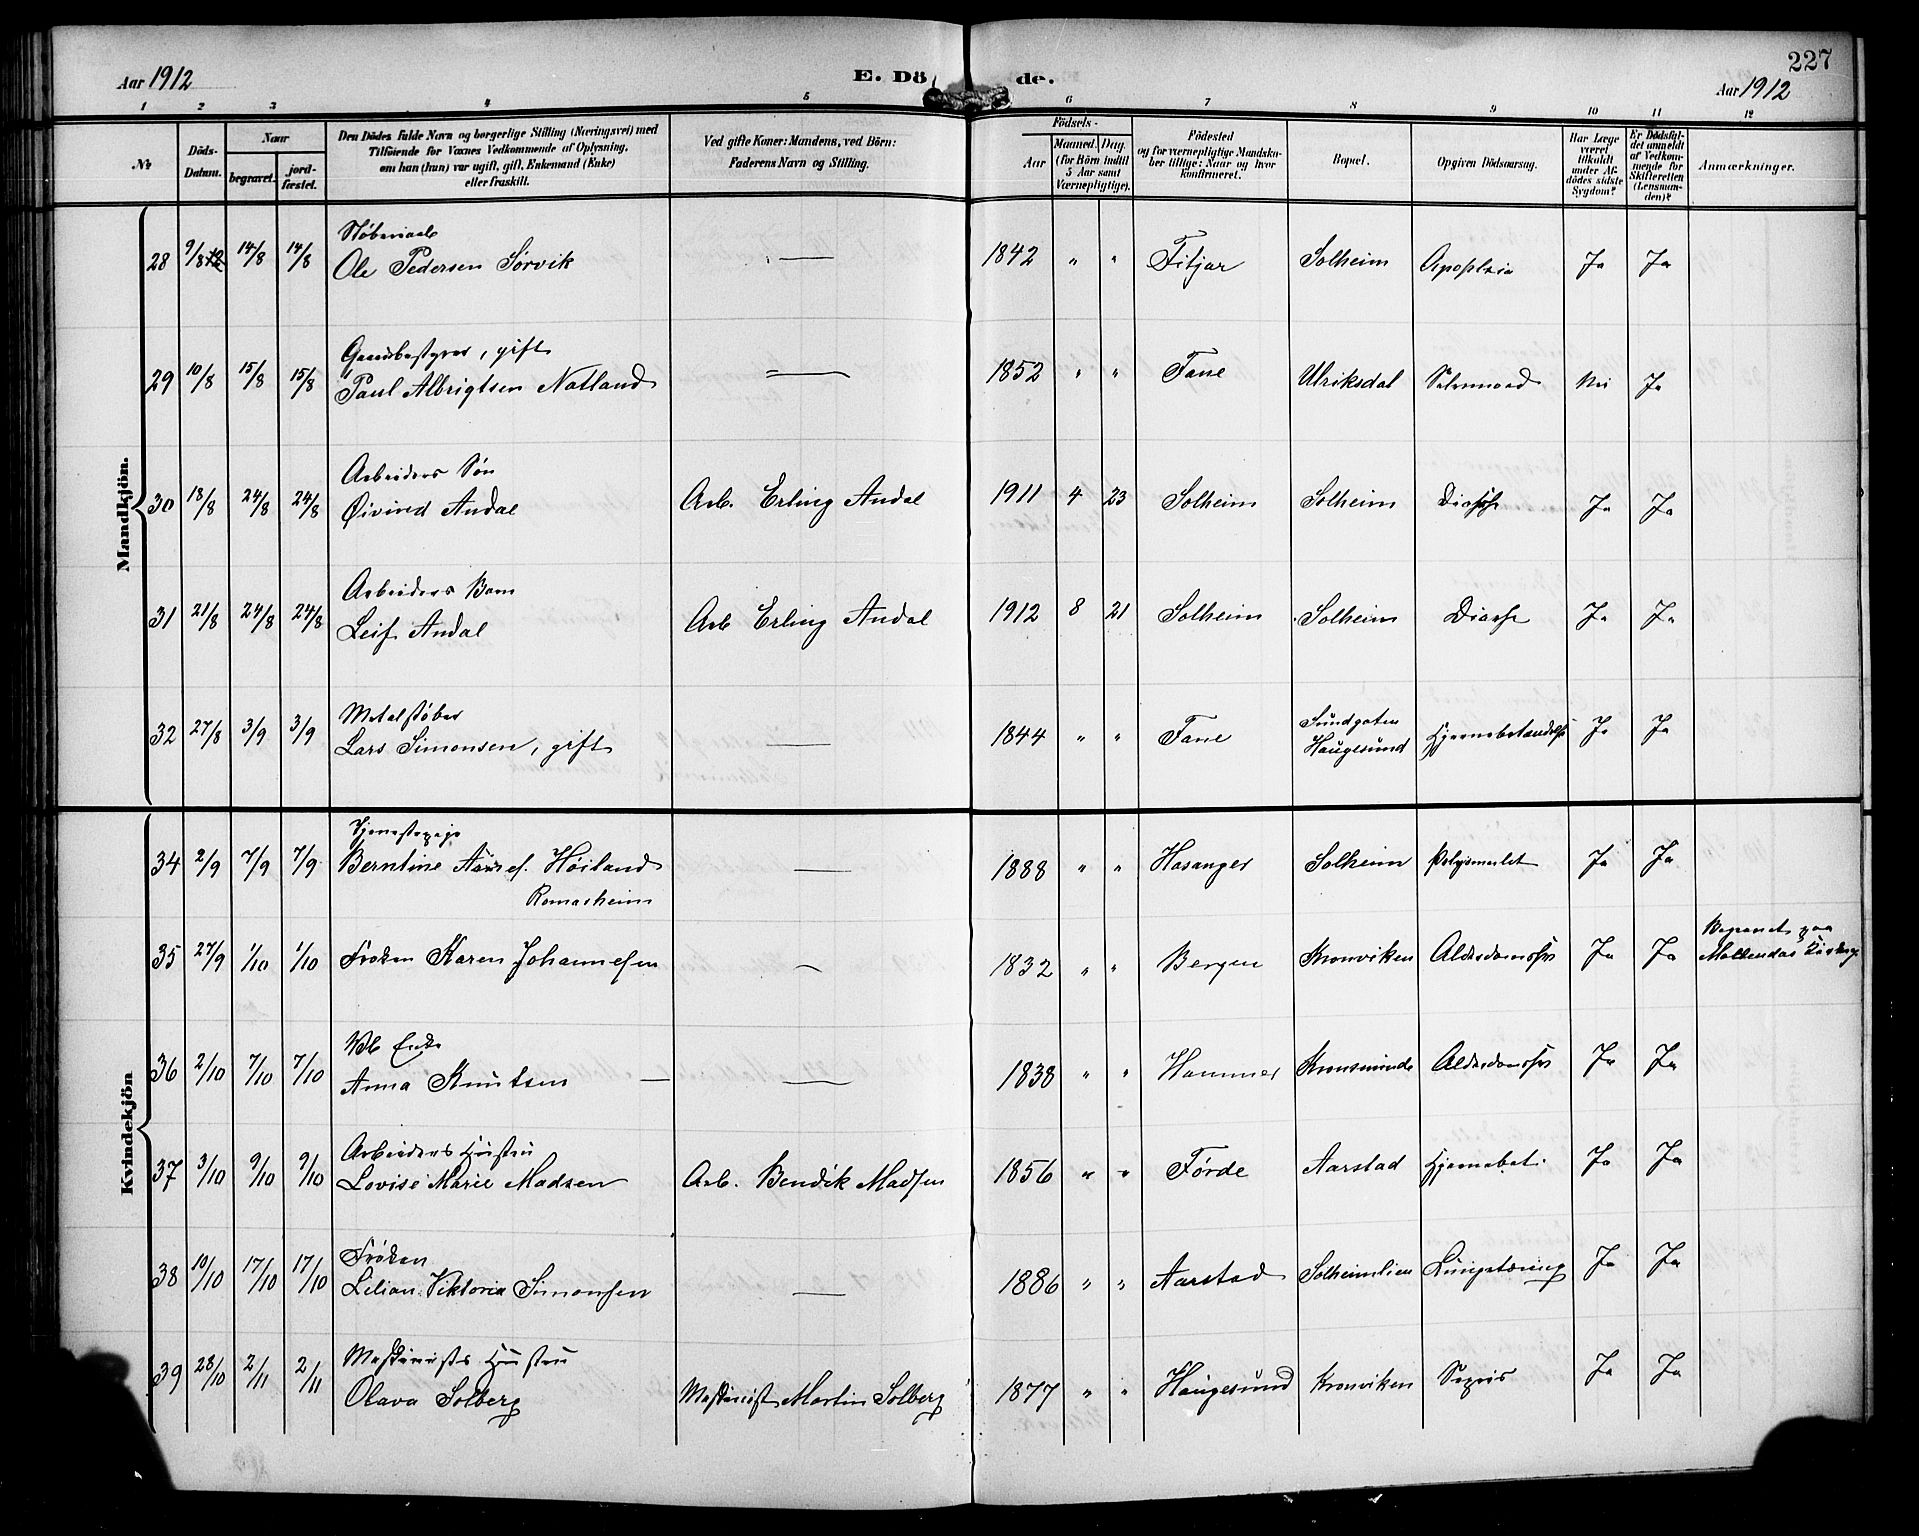 227
Aar 1912
E. Döde.
Aar 1912
1 2 3 4 5 6 7 8 9 10 11 12
No
Döds-Datum.
Naar
begravet.
jordfæstet.
Den Dödes fulde Navn og borgerlige Stilling (Næringsvei) med
Tilföiende for Voxnes Vedkommende af Oplysning,
om han (hun) var ugift, gift, Enkemand (Enke)
eller fraskilt.
Ved gifte Koner: Mandens, ved Börn:
Faderens Navn og Stilling.
Födsels-
Aar
Maaned. Dag.
(for Börn indtil
5 Aar samt
Værnepligtige).
Födested
og for værnepligtige Mandska-
ber tillige: Naar og hvor
konfirmeret.
Bopæl.
Opgiven Dödsaarsag.
Har Læge
været
tilkaldt
under Af-
dödes sidste
Sygdom?
Er Dödsfal-
det anmeldt
af Vedkom-
mende for
Skifteretten
(Lensman-
den)?
Anmærkninger.
Mandkjön.
28 9/8 14/8 14/8
Ole Pedersen Sørvik — 1842 " " Fitjar Solheim Apoplexia Ja Ja
Gaardbestyrer, gift
29 10/8 15/8 15/8 Paul Albrigtsen Natland — 1852 " " Fane Ulriksdal Selvmord Nei Ja
Arbeiders Søn
30 18/8 24/8 24/8 Øivind Andal Arb. Erling Andal 1911 4 23 Solheim Solheim Ja Ja
Arbeiders Barn
31 21/8 24/8 24/8 Leif Andal Arb Erling Andal 1912 8 21 Solheim Solheim Ja Ja
Metalstøber
32 27/8 3/9 3/9 Lars Simonsen, gift — 1844 " " Fane Sundgaten Haugesund Hjernebetændelse Ja Ja
Kvindekjön
Tjenestepige
34 2/9 7/9 7/9 Berntine Høiland — 1888 " " Hosanger Solheim Ja Ja
Romarheim
35 27/9 1/10 1/10 Frøken Karen Johannesen — 1832 " " Bergen Kronviken Alderdomssv Ja Ja Begravet paa
Møllendals Kirkeg.
Enke
36 2/10 7/10 7/10 Anna Knutsen — 1838 " " Hammer Kronsminde Alderdomssv Ja Ja
Arbeiders Hustru
37 3/10 9/10 9/10 Lovise Marie Madsen Arb. Bendik Madsen 1856 " " Førde Aarstad Hjernebet. Ja Ja
Frøken
38 10/10 17/10 17/10 Lilian Viktoria Simonsen — 1886 " " Aarstad Solheimlien Lungetæring Ja Ja
Maskinists Hustru
39 28/10 2/11 2/11 Olava Solberg Maskinist Martin Solberg 1877 " " Haugesund Kronviken Sepsis Ja Ja